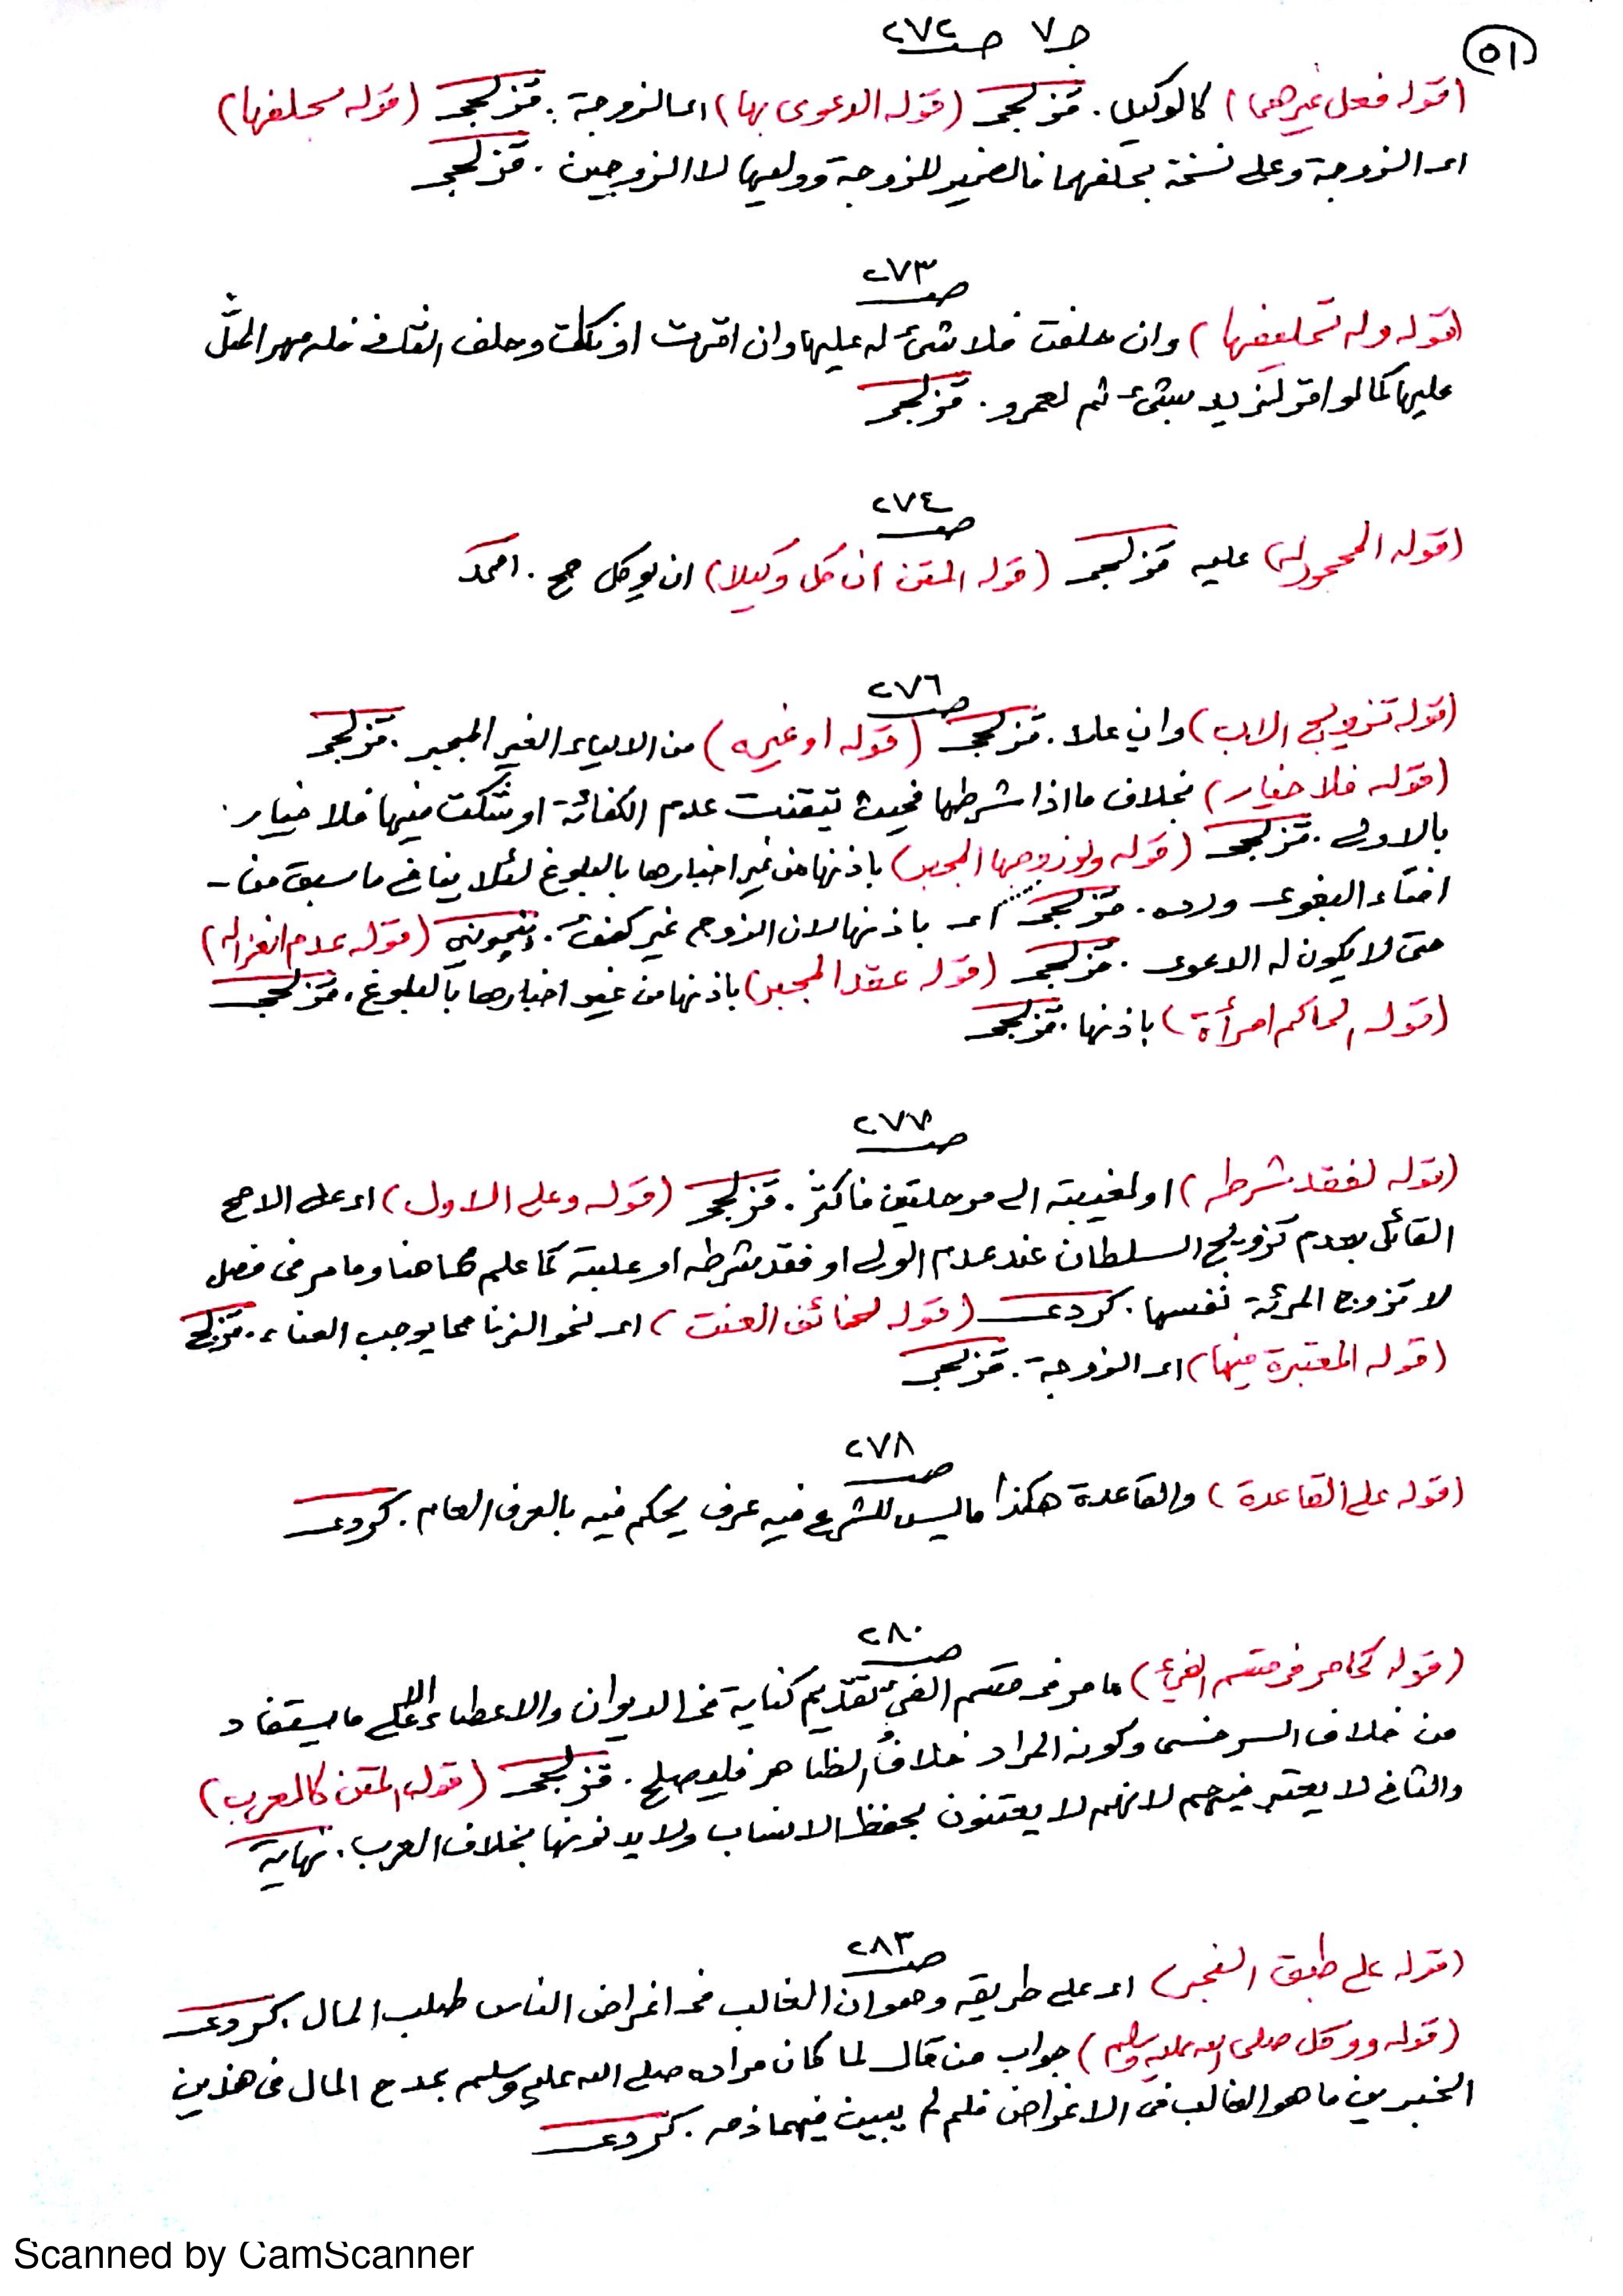 ٥١
ج ٧ صـ ٢٧٢
(قوله فعل غيرهما) كالوكيل. قزلجى (قوله الدعوى بها) اى الزوجة. قزلجى (قوله يحلفها)
اى الزوجة وعلى نسخة يحلفهما فالضمير للزوجة ووليها لا الزوجين. قزلجى
صـ ٢٧٣
(قوله وله تحليفها) وان حلفت فلا شئ له عليها وان اقرت او نكلت وحلف الثانى فله مهر المثل
عليها كما لو اقر لزيد بشئ ثم لعمرو. قزلجى
صـ ٢٧٤
(قوله المحجور له) عليه قزلجى (قوله المتن ان كل وكيلا) ان يوكل صح. احمد
صـ ٢٧٦
(قوله تزويج الاب) وان علا. قزلجى (قوله او غيره) من الاولياء الغير المجبر. قزلجى
(قوله فلا خيار) بخلاف ما اذا شرطها فحيث تيقنت عدم الكفائة او شكت فيها فلا خيار
بالاولى. قزلجى (قوله ولو زوجها المجبر) باذنها من غير اخبارها بالبلوغ لئلا ينافى ما سبق من
افتاء البغوى ورده. قزلجى اى باذنها لان الزوج غير كفئ. پنجوينى (قوله عدم انعزاله)
حتى لا يكون له الدعوى. قزلجى (قوله عقد المجبر) باذنها من غير اخبارها بالبلوغ. قزلجى
(قوله الحاكم امرأة) باذنها. قزلجى
صـ ٢٧٧
(قوله لفقد شرطه) او لغيبته الى مرحلتين فاكثر. قزلجى (قوله وعلى الاول) اى على الاصح
القائل بعدم تزويج السلطان عند عدم الولى او فقد شرطه او غيبته كما علم مما هنا ومامر فى فصل
لا تزوج المرئة نفسها. كردى (قوله لخائف العنت) اى نحو الزنا مما يوجب العناء. قزلجى
(قوله المعتبرة فيها) اى الزوجة. قزلجى
صـ ٢٧٨
(قوله على القاعدة) والقاعدة هكذا ما ليس للشرع فيه عرف يحكم فيه بالعرف العام. كردى
صـ ٢٨٠
(قوله كما مر فى قسم الفئ) ما مر فى قسم الفئ تقديم كنانة فى الديوان والاعطاء ما يستفاد
من خلاف السرخسى وكونه المراد خلاف الظاهر فليصلح. قزلجى (قوله المتن كالعرب)
والثانى لا يعتبر فيهم لانهم لا يعتنون بحفظ الانساب ولا يدونونها بخلاف العرب. نهاية
صـ ٢٨٣
(قوله على طبق الفجر) اى على طريقه وهو ان الغالب فى اغراض الناس طلب المال. كردى
(قوله ووكل صلى الله عليه وسلم) جواب من قال لما كان مراده صلى الله عليه وسلم بمدح المال فى هذين
الخبرين ما هو الغالب فى الاغراض فلم لم يبين فيهما ذمه. كردى
Scanned by CamScanner